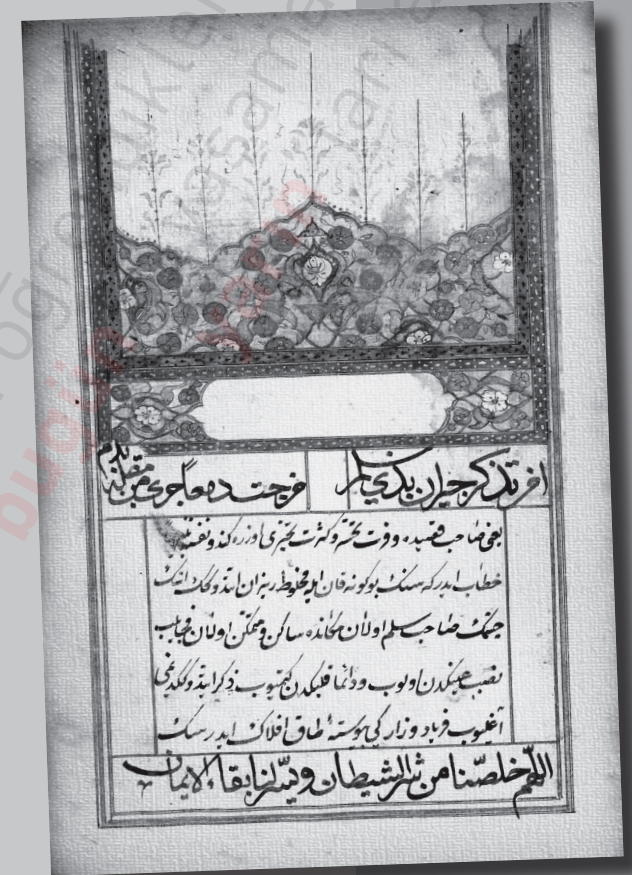 امن تذكر جيران بذي سلم
مزجت دمعا جرى من مقلة بدم
يعنى صاحب قصيده وفرت تحسر و كثرت تحيرى اوزره كندو نفسنه
خطاب ايدر كه سنك بو كونه قان ايله مخلوط ريزان ايتدوكك اشك
چشمك صاحب سلم اولان مكانده ساكن و متمكن اولان
نصب عينكدن اولوب و دائما قلبكدن كيتميوب ذكر ايتدوككدنمى
آغليوب فرياد و زارك پيوستهٔ طاق افلاك ايدرسك
اللهم خلصنا من شر الشيطان ويسر لنا بقاء الايمان